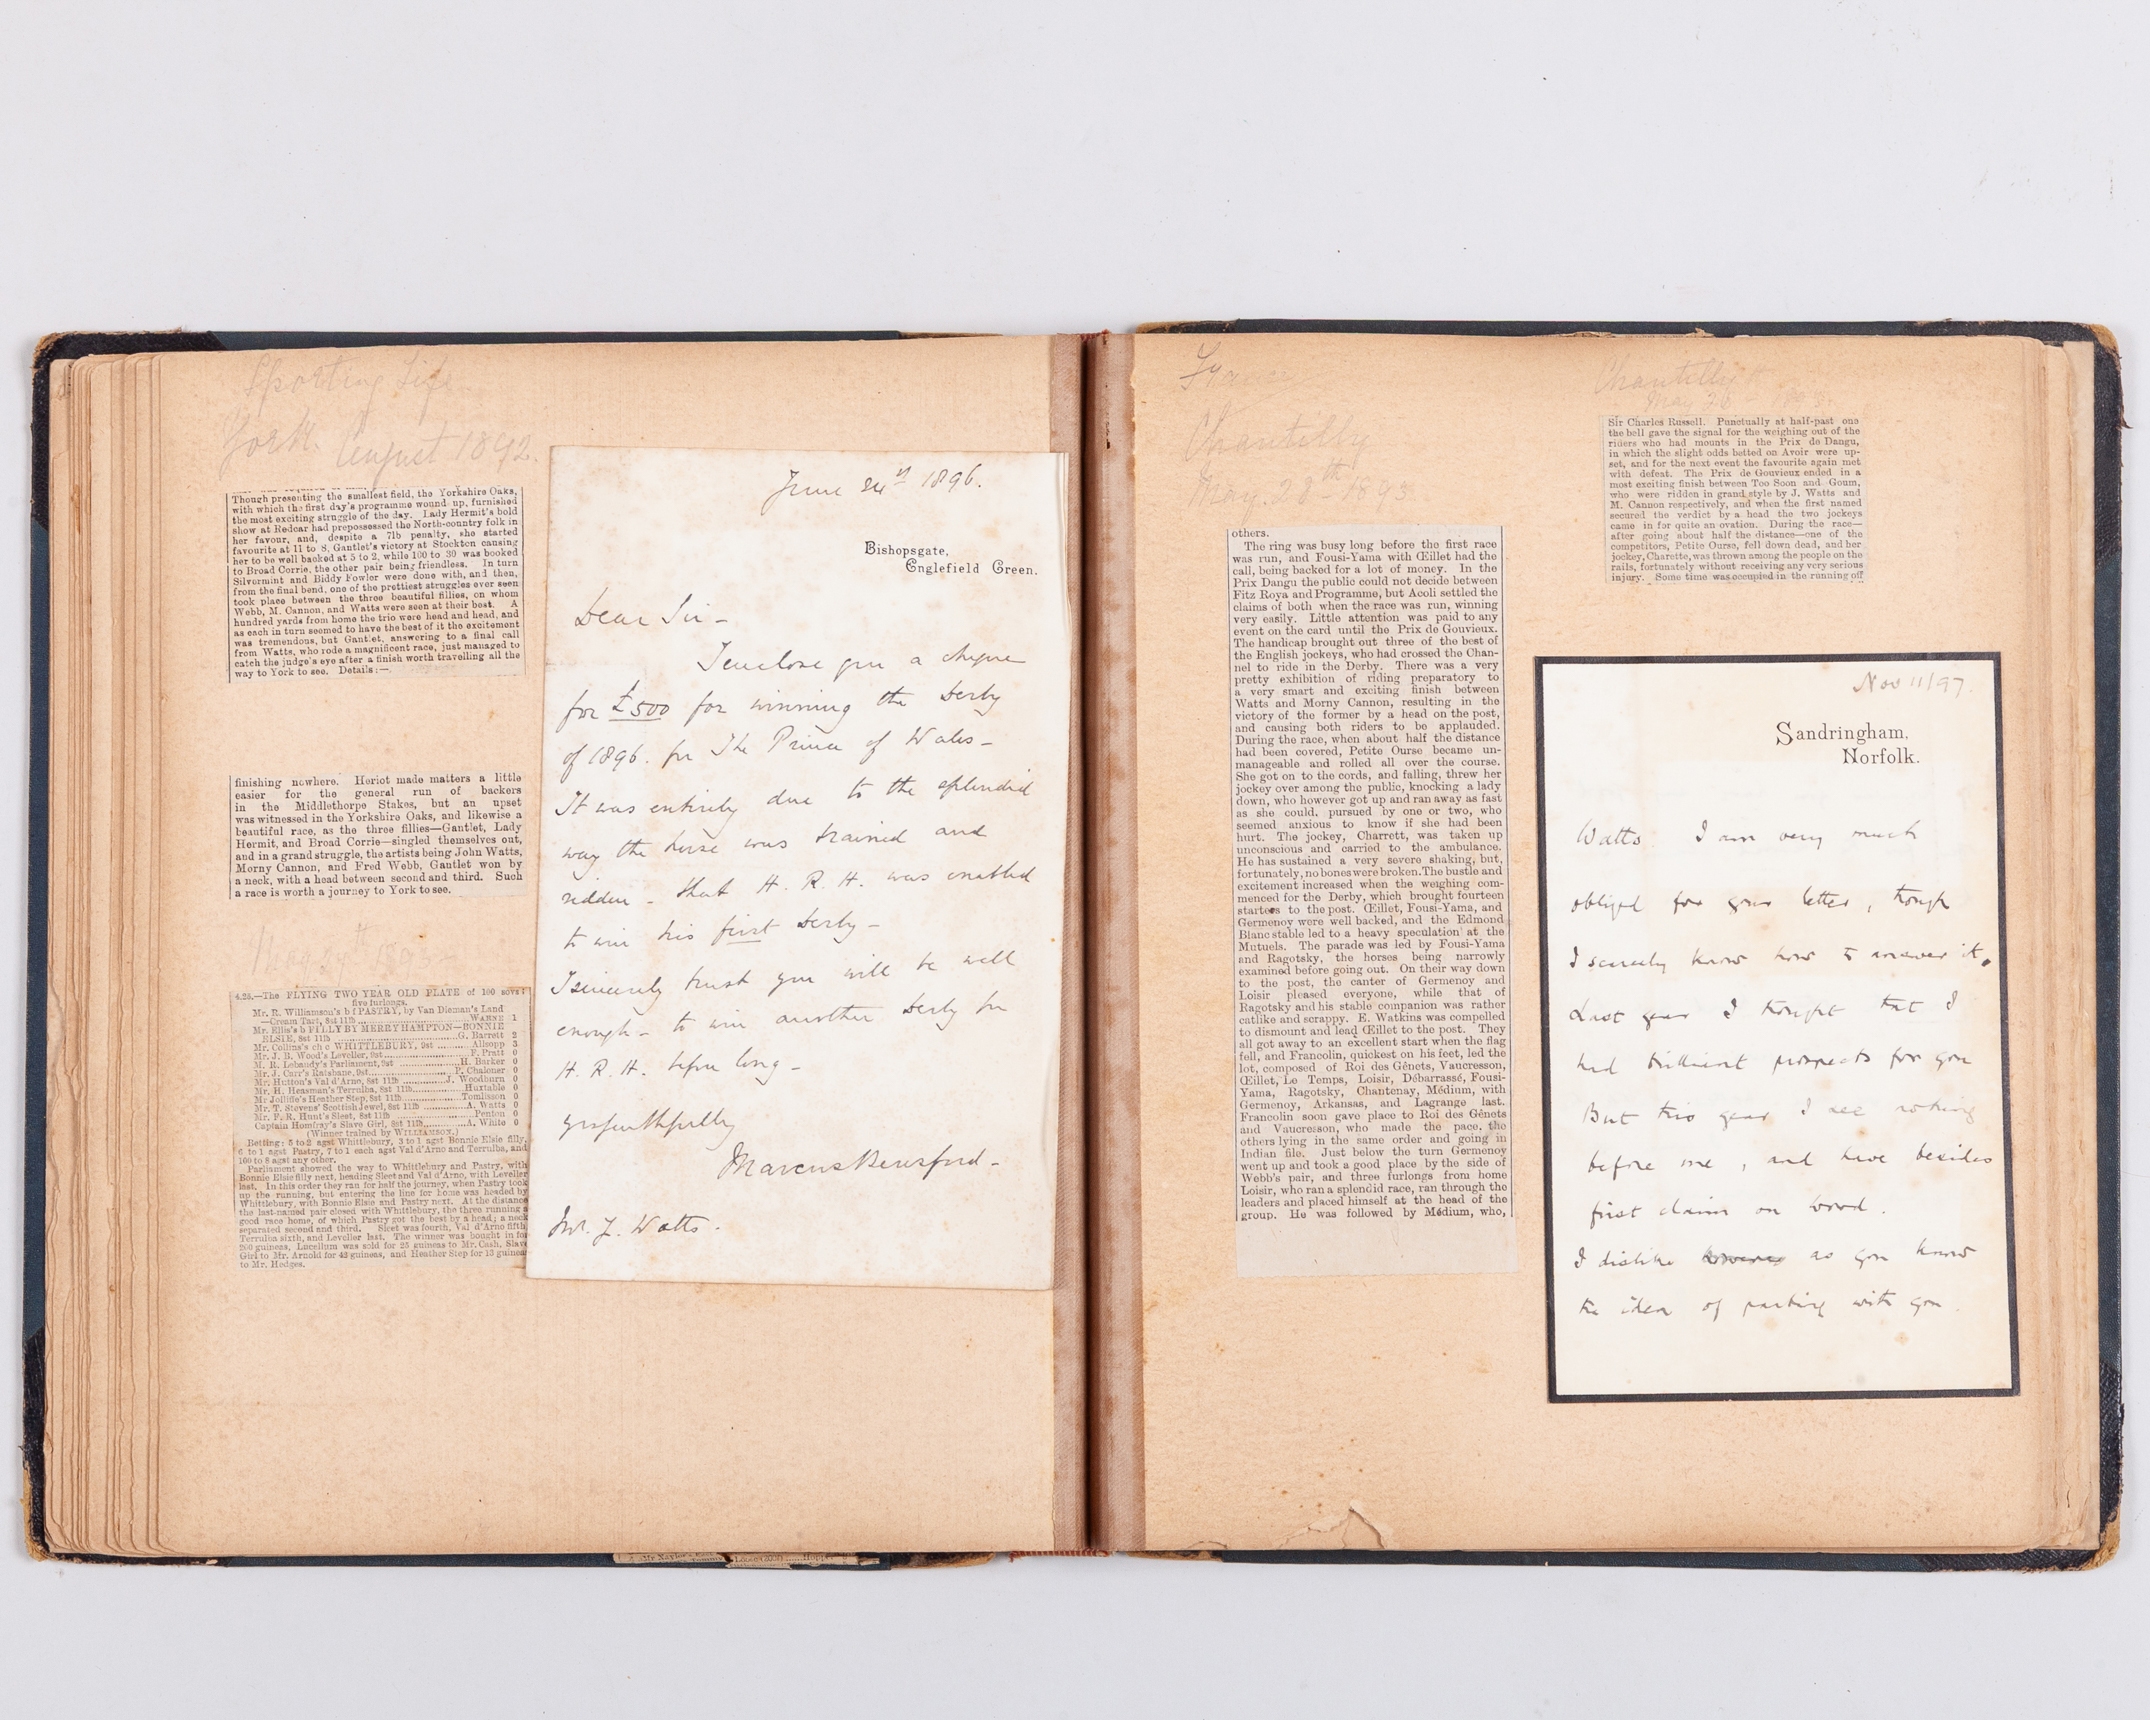 Sporting Life
York. August 1892.
Though presenting the smallest field, the Yorkshire Oaks,
with which the first day's programme wound up, furnished
the most exciting struggle of the day. Lady Hermit's bold
show at Redcar had prepossessed the North-country folk in
her favour, and, despite a 7lb penalty, she started
favourite at 11 to 8, Gantlet's victory at Stockton causing
her to be well backed at 5 to 2, while 100 to 30 was booked
to Broad Corrie, the other pair being friendless. In turn
Silvermint and Biddy Fowler were done with, and then,
from the final bend, one of the prettiest struggles ever seen
took place between the three beautiful fillies, on whom
Webb, M. Cannon, and Watts were seen at their best. A
hundred yards from home the trio were head and head, and
as each in turn seemed to have the best of it the excitement
was tremendous, but Gantlet, answering to a final call
from Watts, who rode a magnificent race, just managed to
catch the judge's eye after a finish worth travelling all the
way to York to see. Details:—
finishing nowhere. Heriot made matters a little
easier for the general run of backers
in the Middlethorpe Stakes, but an upset
was witnessed in the Yorkshire Oaks, and likewise a
beautiful race, as the three fillies—Gantlet, Lady
Hermit, and Broad Corrie—singled themselves out,
and in a grand struggle, the artists being John Watts,
Morny Cannon, and Fred Webb, Gantlet won by
a neck, with a head between second and third. Such
a race is worth a journey to York to see.
4.25.—The FLYING TWO YEAR OLD PLATE of 100 sovs;
five furlongs.
Mr. R. Williamson's b f PASTRY, by Van Dieman's Land
—Cream Tart, 8st 11lb ... WARNE 1
Mr. Ellis's b FILLY BY MERRY HAMPTON—BONNIE
ELSIE, 8st 11lb ... G. Barrett 2
Mr. Collins's ch c WHITTLEBURY, 9st ... Allsopp 3
Mr. J. B. Wood's Leveller, 9st ... F. Pratt 0
M. R. Lebaudy's Parliament, 9st ... H. Barker 0
Mr. J. Carr's Ratsbane, 9st ... P. Chaloner 0
Mr. Hutton's Val d'Arno, 8st 11lb ... J. Woodburn 0
Mr. H. Heasman's Terrulba, 8st 11lb ... Huxtable 0
Mr Jolliffe's Heather Step, 8st 11lb ... Tomlisson 0
Mr. T. Stevens' Scottish Jewel, 8st 11lb ... A. Watts 0
Mr. F. R. Hunt's Sleet, 8st 11lb ... Penton 0
Captain Homfray's Slave Girl, 8st 11lb ... A. White 0
(Winner trained by WILLIAMSON.)
Betting: 5 to 2 agst Whittlebury, 3 to 1 agst Bonnie Elsie filly,
6 to 1 agst Pastry, 7 to 1 each agst Val d'Arno and Terrulba, and
100 to 8 agst any other.
Parliament showed the way to Whittlebury and Pastry, with
Bonnie Elsie filly next, heading Sleet and Val d'Arno, with Leveller
last. In this order they ran for half the journey, when Pastry took
up the running, but entering the line for home was headed by
Whittlebury, with Bonnie Elsie and Pastry next. At the distance
the last-named pair closed with Whittlebury, the three running a
good race home, of which Pastry got the best by a head; a neck
separated second and third. Sleet was fourth, Val d'Arno fifth,
Terrulba sixth, and Leveller last. The winner was bought in for
260 guineas, Lucellum was sold for 25 guineas to Mr. Cash, Slave
Girl to Mr. Arnold for 42 guineas, and Heather Step for 13 guineas
to Mr. Hedges.
June 24th 1896.
Bishopsgate,
Englefield Green.
Dear Sir –
I enclose you a cheque
for £500 for winning the Derby
of 1896. for The Prince of Wales –
It was entirely due to the splendid
way the horse was trained and
ridden – that H. R. H. was enabled
to win his first Derby –
I sincerely trust you will be well
enough – to win another Derby for
H. R. H. before long –
yrs faithfully
Marcus Beresford –
Mr. J. Watts.
France
Chantilly
May. 28th 1893.
others.
The ring was busy long before the first race
was run, and Fousi-Yama with Œillet had the
call, being backed for a lot of money. In the
Prix Dangu the public could not decide between
Fitz Roya and Programme, but Acoli settled the
claims of both when the race was run, winning
very easily. Little attention was paid to any
event on the card until the Prix de Gouvieux.
The handicap brought out three of the best of
the English jockeys, who had crossed the Chan-
nel to ride in the Derby. There was a very
pretty exhibition of riding preparatory to
a very smart and exciting finish between
Watts and Morny Cannon, resulting in the
victory of the former by a head on the post,
and causing both riders to be applauded.
During the race, when about half the distance
had been covered, Petite Ourse became un-
manageable and rolled all over the course.
She got on to the cords, and falling, threw her
jockey over among the public, knocking a lady
down, who however got up and ran away as fast
as she could, pursued by one or two, who
seemed anxious to know if she had been
hurt. The jockey, Charrett, was taken up
unconscious and carried to the ambulance.
He has sustained a very severe shaking, but,
fortunately, no bones were broken. The bustle and
excitement increased when the weighing com-
menced for the Derby, which brought fourteen
starters to the post. Œillet, Fousi-Yama, and
Germenoy were well backed, and the Edmond
Blanc stable led to a heavy speculation at the
Mutuels. The parade was led by Fousi-Yama
and Ragotsky, the horses being narrowly
examined before going out. On their way down
to the post, the canter of Germenoy and
Loisir pleased everyone, while that of
Ragotsky and his stable companion was rather
catlike and scrappy. E. Watkins was compelled
to dismount and lead Œillet to the post. They
all got away to an excellent start when the flag
fell, and Francolin, quickest on his feet, led the
lot, composed of Roi des Gênets, Vaucresson,
Œillet, Le Temps, Loisir, Débarrassé, Fousi-
Yama, Ragotsky, Chantenay, Médium, with
Germenoy, Arkansas, and Lagrange last.
Francolin soon gave place to Roi des Gênets
and Vaucresson, who made the pace, the
others lying in the same order and going in
Indian file. Just below the turn Germenoy
went up and took a good place by the side of
Webb's pair, and three furlongs from home
Loisir, who ran a splendid race, ran through the
leaders and placed himself at the head of the
group. He was followed by Médium, who,
Chantilly
May 28
Sir Charles Russell. Punctually at half-past one
the bell gave the signal for the weighing out of the
riders who had mounts in the Prix de Dangu,
in which the slight odds betted on Avoir were up-
set, and for the next event the favourite again met
with defeat. The Prix de Gouvieux ended in a
most exciting finish between Too Soon and Goum,
who were ridden in grand style by J. Watts and
M. Cannon respectively, and when the first named
secured the verdict by a head the two jockeys
came in for quite an ovation. During the race—
after going about half the distance—one of the
competitors, Petite Ourse, fell down dead, and her
jockey, Charette, was thrown among the people on the
rails, fortunately without receiving any very serious
injury. Some time was occupied in the running off
Nov 11/97.
Sandringham,
Norfolk.
Watts I am very much
obliged for your letter, though
I scarcely know how to answer it.
Last year I thought that I
had brilliant prospects for you
But this year I see nothing
before me, and have besides
first claim on Wood.
I dislike as you know
the idea of parting with you.